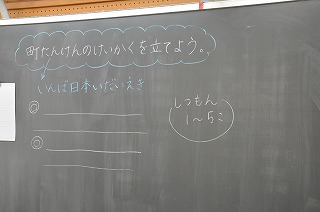 町たんけんのけいかくを立てよう。
しんば日本いだいえき
◎
◎
しつもん
1〜5こ